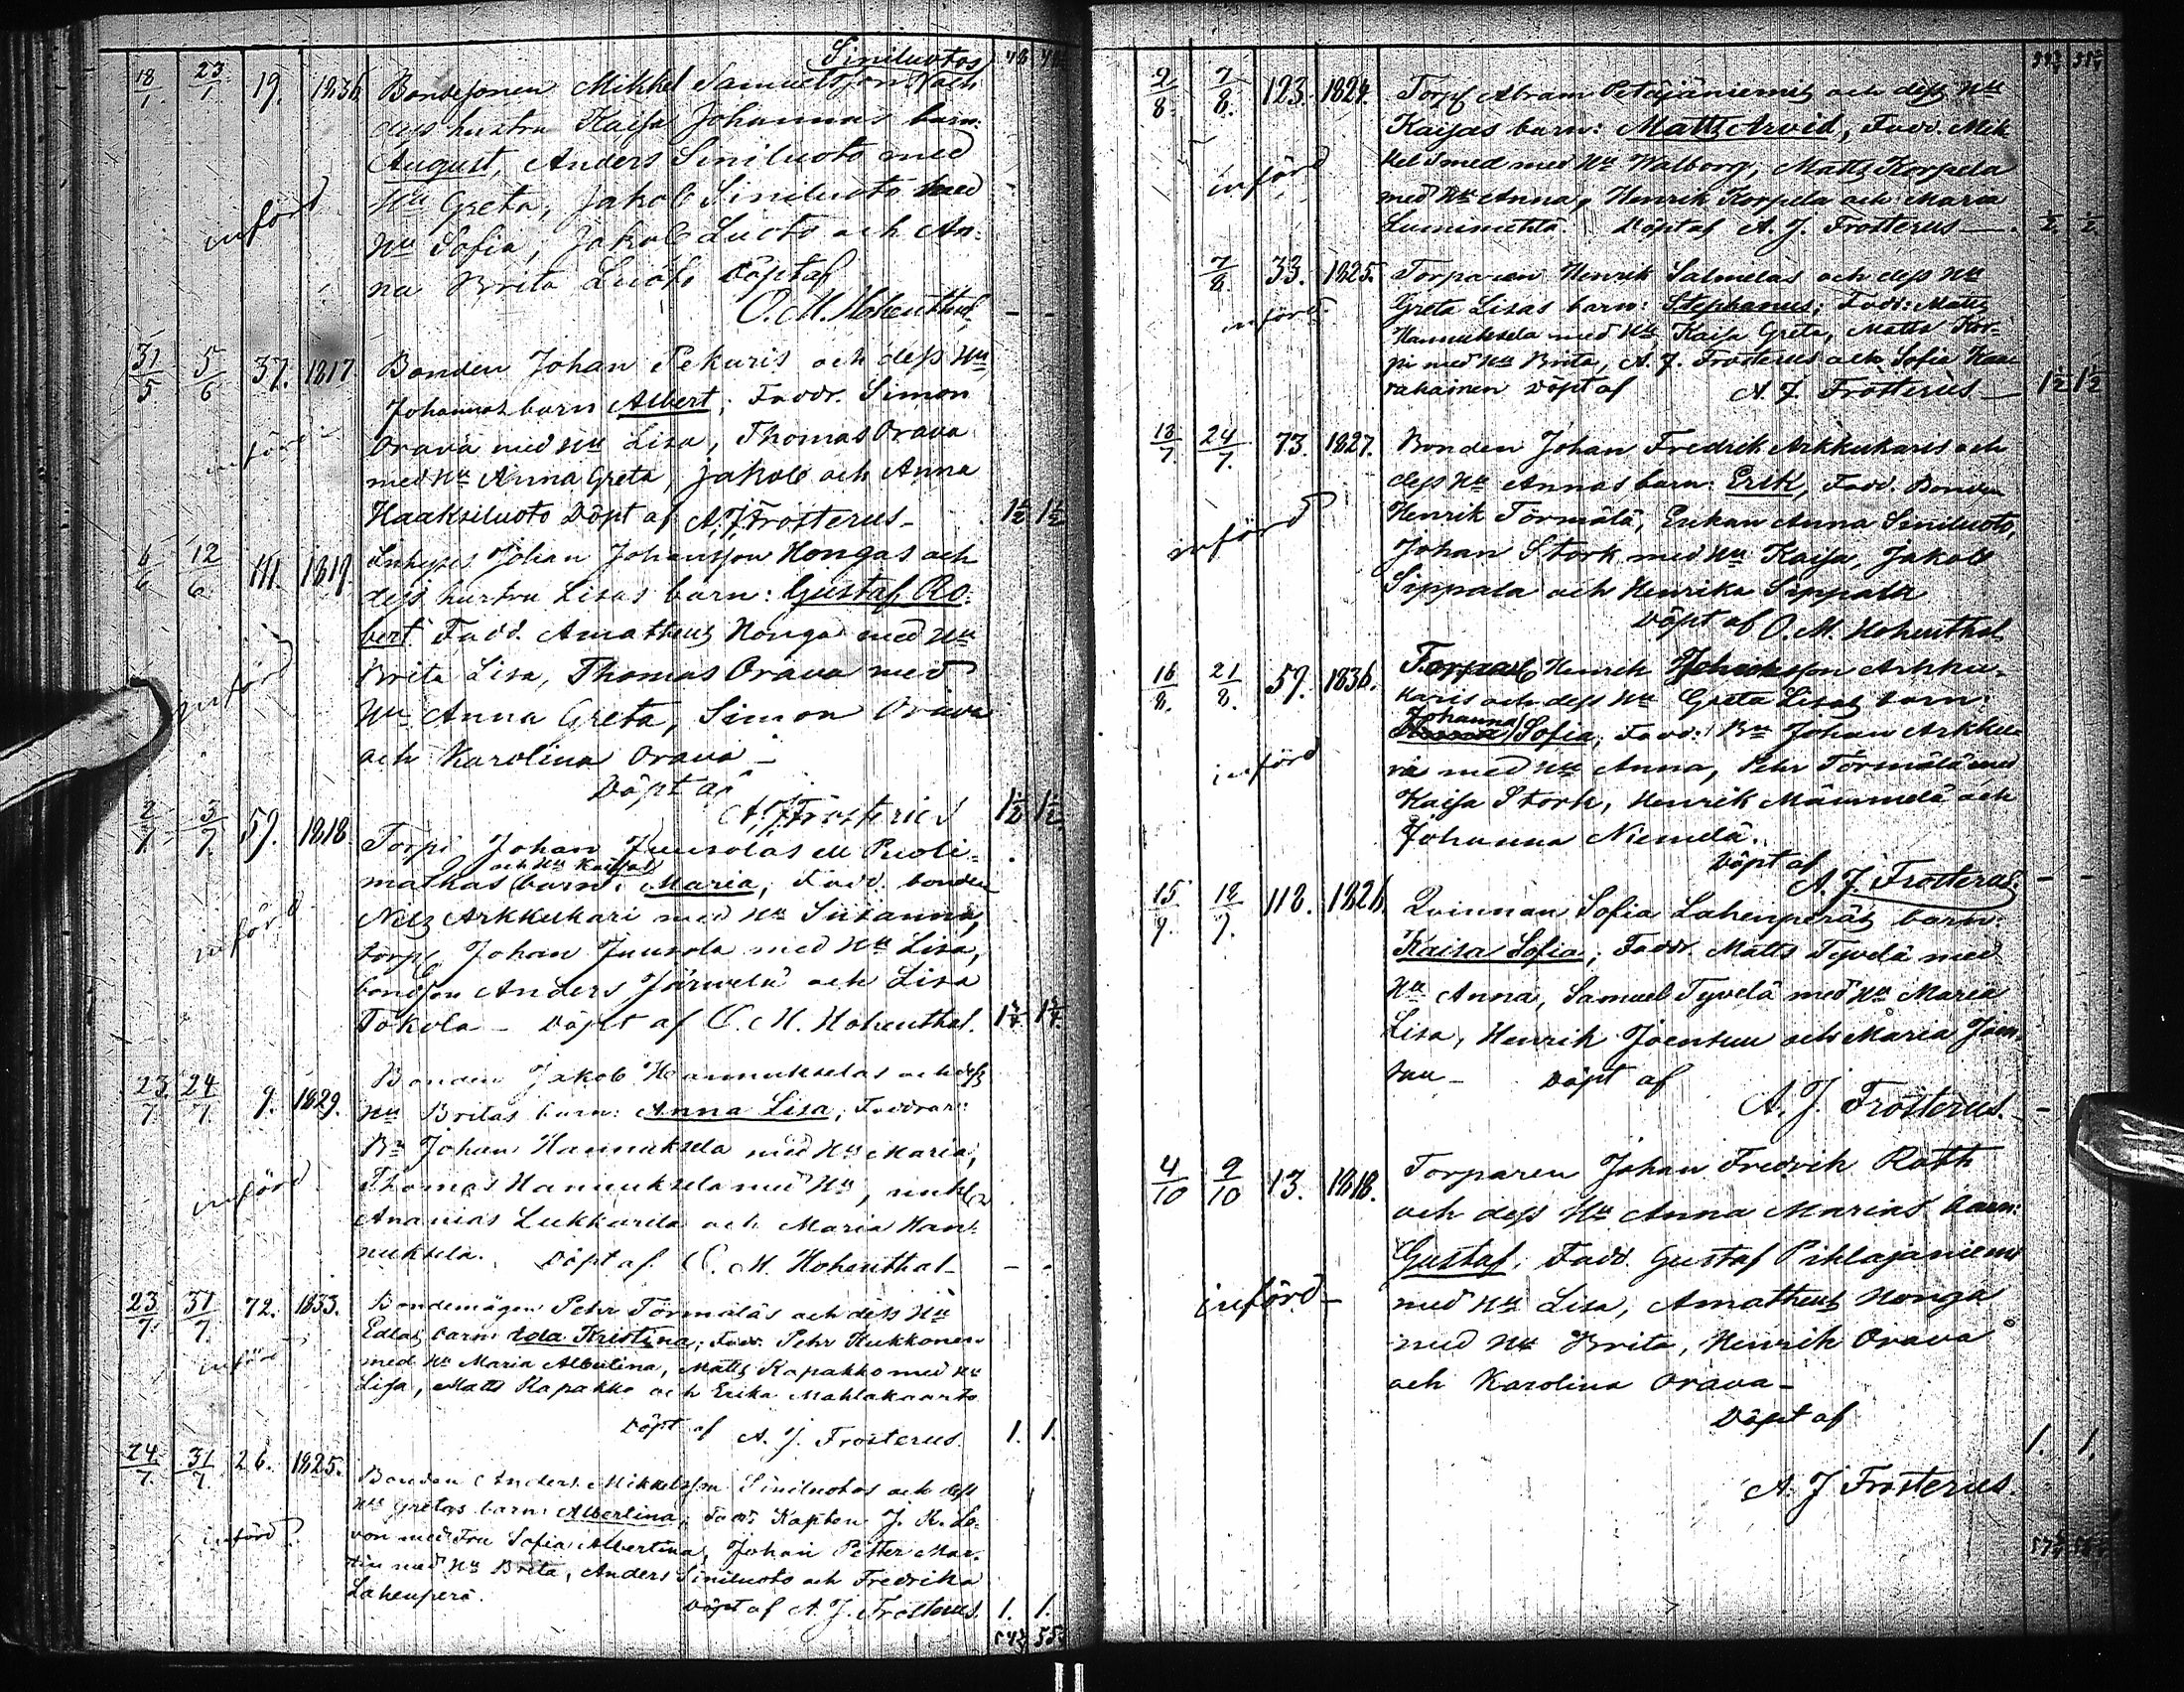 Siniluotos
18/1. 23/1 19. 1836 Bondesonen Mikkel Samuelsson och
dess hustru Kaisa Johannas barn:
August, Anders Siniluoto med
Hu Greta, Jakob Siniluoto med
införd
Hu Sofia, Jakob Luoto och An-
na Brita Luoto Döpt af
O. M. Hohenthal
31/5 5/6 37. 1817 Bonden Johan Pekuris och dess Hu
Johannas barn Albert; Faddr. Simon
Orava med Hu Lisa, Thomas Orava
införd
med Hu Anna Greta, Jakob och Anna
Haaksiluoto Döpt af A. J. Frosterus - 1½ 1½
6/6 12/6 111. 1819. Inhyses Johan Johansson Hongas och
dess hustru Lisas barn: Gustaf Ro-
bert Fadd. Amatheus Honga med Hu
Brita Lisa, Thomas Orava med
införd
Hu Anna Greta, Simon Orava
och Karolina Orava -
Döpt af
A. J. Frosterus 1½ 1½
2/7. 3/7. 59. 1818. Torp. Johan Juusolas
och Hu Kaisas
barn: Maria, Fadd. bonden
Nils Arkkukari med Hu Susanna,
införd
torp. Johan Juusola med Hu Lisa,
bondson Anders Järvelä och Lisa
Tokola - Döpt af O. M. Hohenthal.
23/7. 24/7. 9. 1829. Bonden Jakob Hannukselas och dess
Hu Britas barn: Anna Lisa, Faddrar:
Bn Johan Hannuksela med Hu Maria,
införd
Thomas Hannuksela med Hu,
Ananias Lukkarila och Maria Han-
nuksela. Döpt af O. M. Hohenthal -
23/7. 31/7. 72. 1833. Bondemågen Pehr Törmäläs och dess Hu
Edlas barn Ida Kristina; Fadd. Pehr Hukkonen
införd
med Hu Maria Albertina, Matts Rapakko med Hu
Lisa, Matts Rapakko och Erika Mahlakaarto
Döpt af A. J. Frosterus. 1. 1.
24/7. 31/7. 26. 1825. Bonden Anders Mikkelsson Siniluotos och dess
Hu Gretas barn: Albertina, Fadd. Kapten J. K. Lo-
införd
von med Fru Sofia Albertina, Johan Petter Mar-
tin med Hu Brita, Anders Siniluoto och Fredrika
Lahenperä. Döpt af A. J. Frosterus. 1. 1.
2/8. 7/8. 123. 1824. Torp. Abram Petäjäniemis och dess Hu
Kaisas barn: Matts Arvid, Fadd. Mik-
kel Smed med Hu Walborg, Matts Korpela
införd
med Hu Anna, Henrik Korpela och Maria
Luminahta. Döpt af A. J. Frosterus - ½ ½
7/8 33. 1825. Torparen Henrik Salmelas och dess Hu
Greta Lisas barn: Stephanus; Fadd: Matts
införd
Hannuksela med Hu Kaisa Greta, Matts Kor-
pi med Hu Brita, A. J. Frosterus och Sofia Kar-
vahainen Döpt af A. J. Frosterus - 1½ 1½
18/7 24/7. 73. 1827. Bonden Johan Fredrik Arkkukaris och
dess Hu Annas barn: Erik, Fadd. Bonden
Henrik Törmälä, Enkan Anna Siniluoto,
införd
Johan Stork med Hu Kaisa, Jakob
Sippala och Henrika Sippala
Döpt af O. M. Hohenthal
16/8. 21/8. 59. 1836. Henrik Arkku-
karis och dess Hu Greta Lisas barn:
Johanna
Sofia, Fadd: Bn Johan Arkkuka-
införd
ri med Hu Anna, Pehr Törmälä med
Kaisa Stork, Henrik Mämmelä och
Johanna Niemelä.
Döpt af
A. J. Frosterus. - -
15/9. 18/9. 118. 1826. Qvinnan Sofia Lahenperäs barn:
Kaisa Sofia; Faddr. Matts Tyvelä med
Hu Anna, Samuel Tyvelä med Hu Maria
Lisa, Henrik Joensuu och Maria Joen-
suu - Döpt af
A. J. Frosterus. -
4/10 9/10 13. 1818. Torparen Johan Fredrik Roth
och dess Hu Anna Marias barn:
Gustaf, Fadd. Gustaf Pihlajaniemi
införd -
med Hu Lisa, Amatheus Honga
med Hu Brita, Henrik Orava
och Karolina Orava -
Döpt af
1. 1.
A. J. Frosterus.